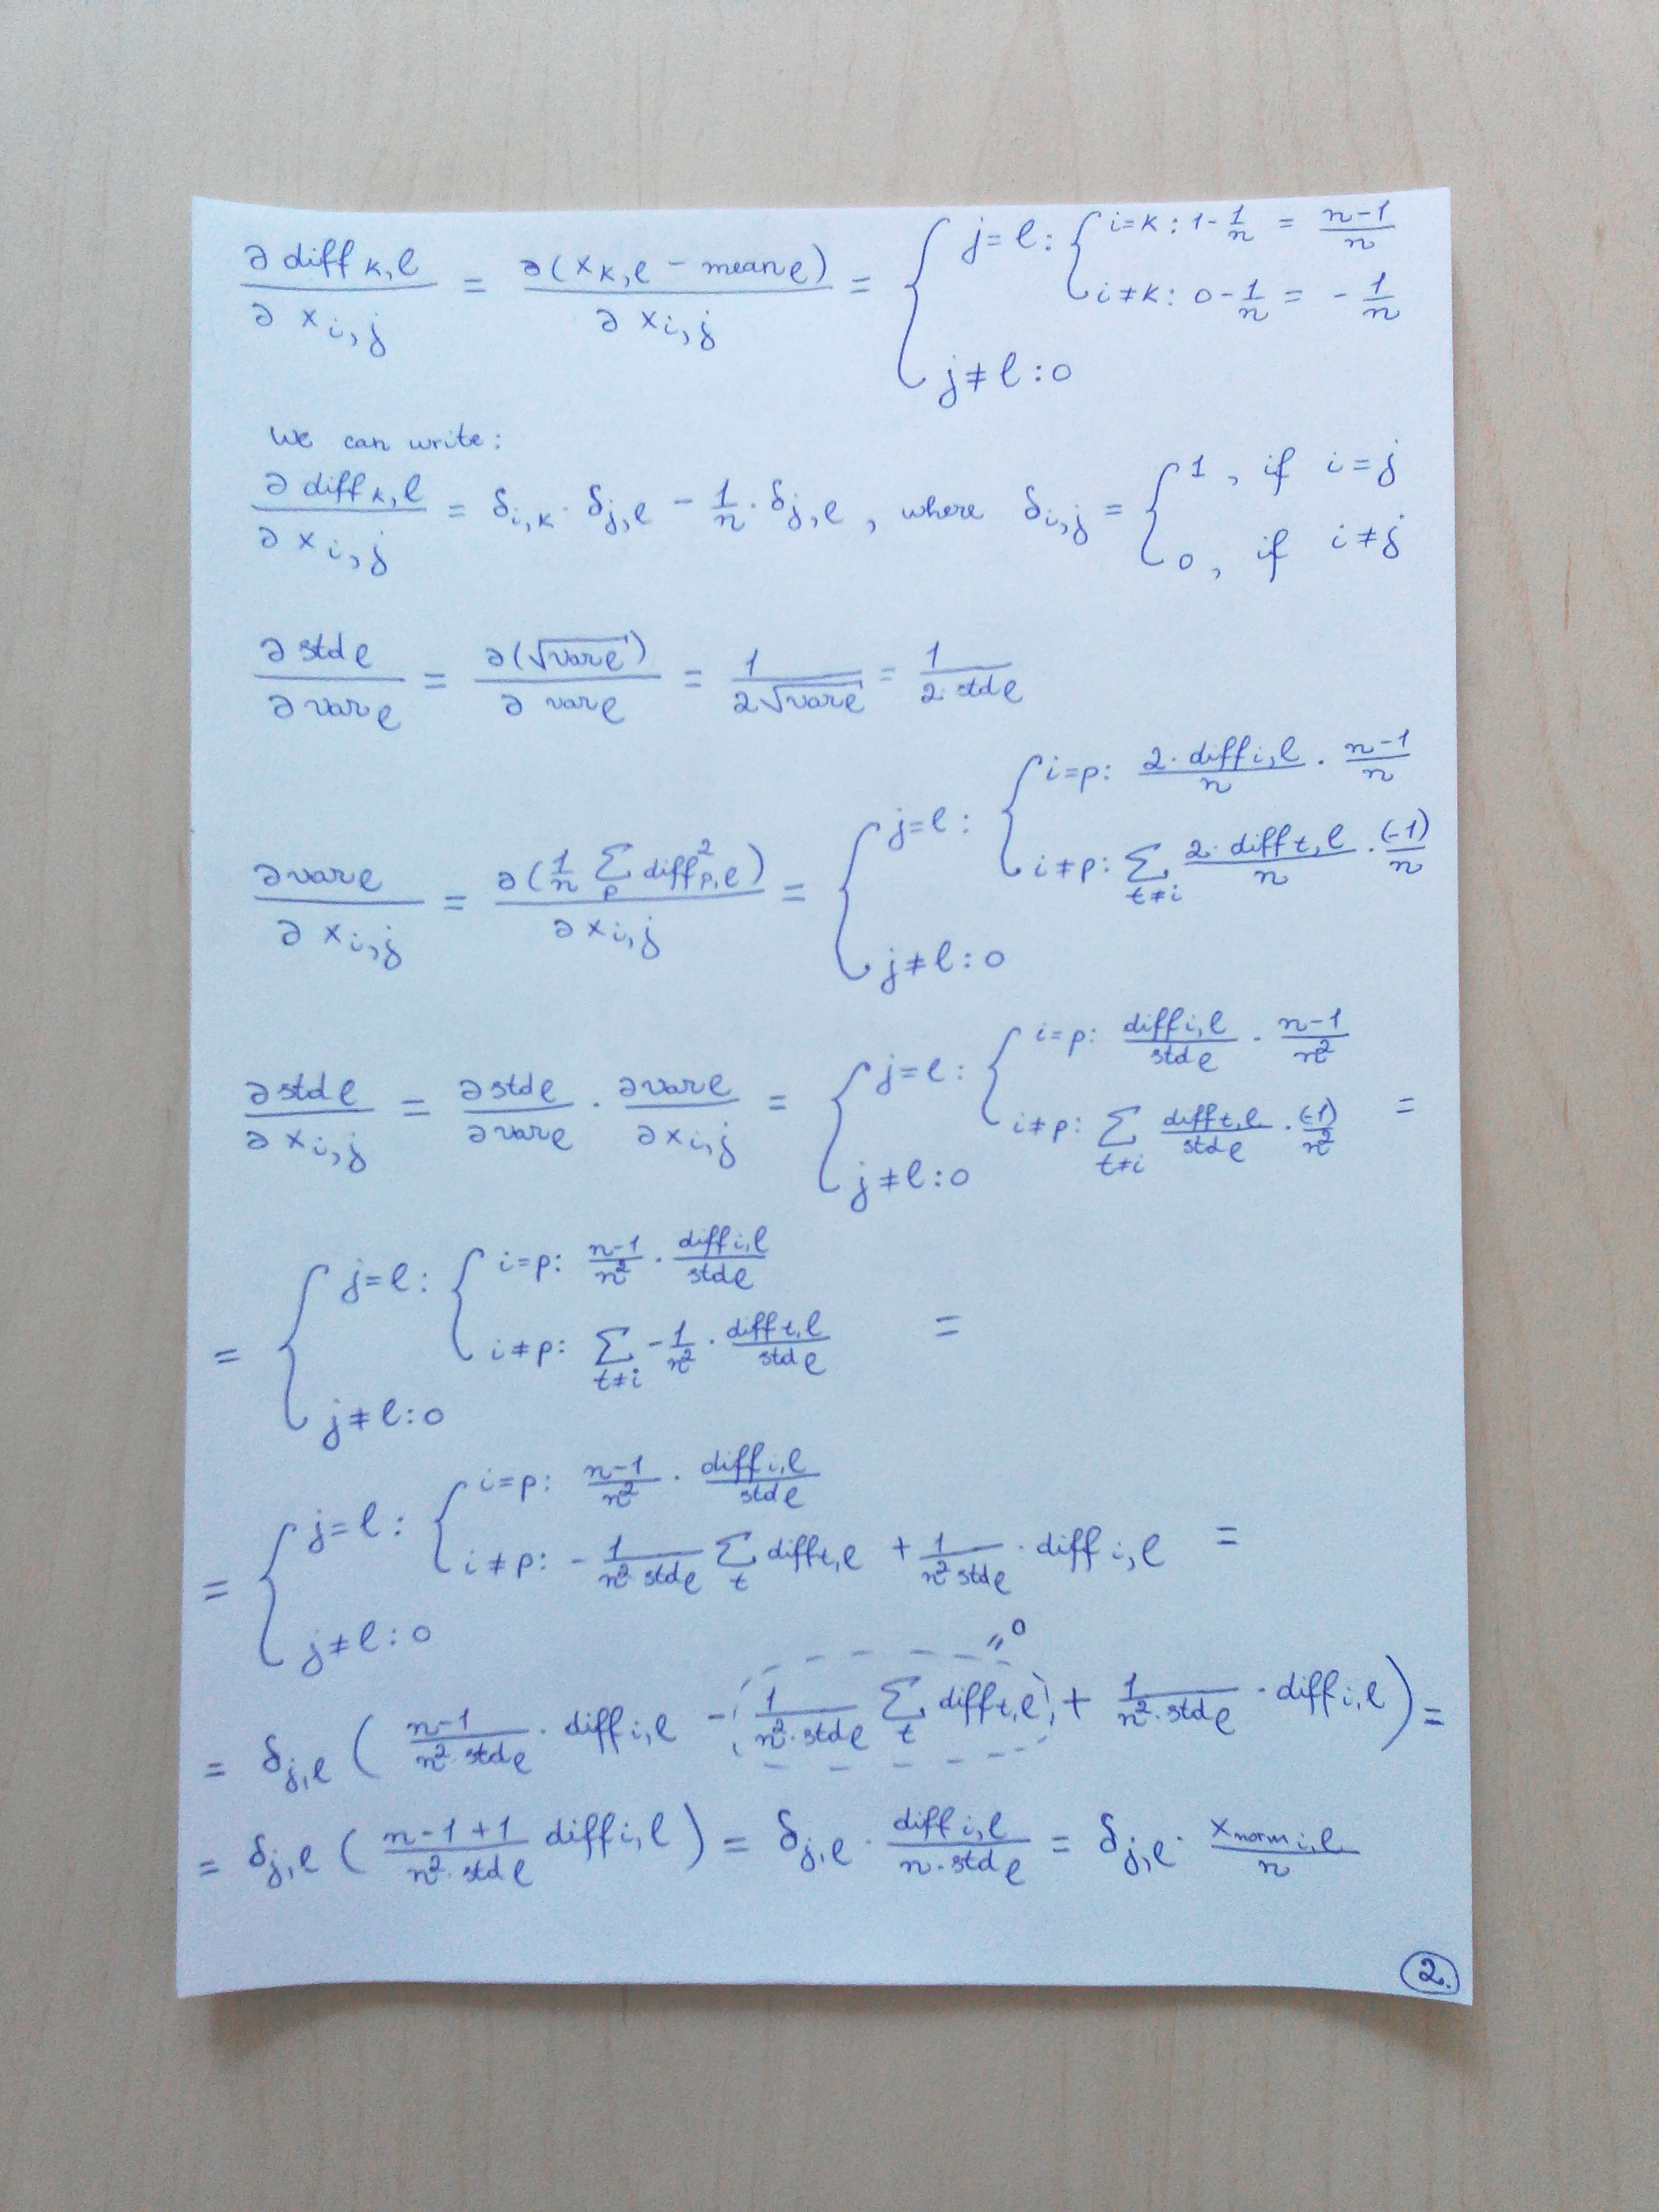 ∂ diff k,ℓ / ∂ x i,j = ∂(x k,ℓ − mean ℓ) / ∂ x i,j = { j=ℓ: { i=k: 1 − 1/n = (n−1)/n
i≠k: 0 − 1/n = −1/n
j≠ℓ: 0
we can write:
∂ diff k,ℓ / ∂ x i,j = δ i,k · δ j,ℓ − 1/n · δ j,ℓ , where δ i,j = { 1, if i=j
0, if i≠j
∂ std ℓ / ∂ var ℓ = ∂(√var ℓ) / ∂ var ℓ = 1 / 2√var ℓ = 1 / 2· std ℓ
∂ var ℓ / ∂ x i,j = ∂(1/n ∑ p diff² p,ℓ) / ∂ x i,j = { j=ℓ: { i=p: 2· diff i,ℓ / n · (n−1)/n
i≠p: ∑ t≠i 2· diff t,ℓ / n · (−1)/n
j≠ℓ: 0
∂ std ℓ / ∂ x i,j = ∂ std ℓ / ∂ var ℓ · ∂ var ℓ / ∂ x i,j = { j=ℓ: { i=p: diff i,ℓ / std ℓ · (n−1)/n²
i≠p: ∑ t≠i diff t,ℓ / std ℓ · (−1)/n² =
j≠ℓ: 0
= { j=ℓ: { i=p: (n−1)/n² · diff i,ℓ / std ℓ
i≠p: ∑ t≠i −1/n² · diff t,ℓ / std ℓ =
j≠ℓ: 0
= { j=ℓ: { i=p: (n−1)/n² · diff i,ℓ / std ℓ
i≠p: − 1/(n² std ℓ) ∑ t diff t,ℓ + 1/(n² std ℓ) · diff i,ℓ =
j≠ℓ: 0
= 0
= δ j,ℓ ( (n−1)/(n² · std ℓ) · diff i,ℓ − 1/(n² · std ℓ) ∑ t diff t,ℓ + 1/(n² · std ℓ) · diff i,ℓ ) =
= δ j,ℓ ( (n−1+1)/(n² · std ℓ) diff i,ℓ ) = δ j,ℓ · diff i,ℓ / (n · std ℓ) = δ j,ℓ · x norm i,ℓ / n
2.